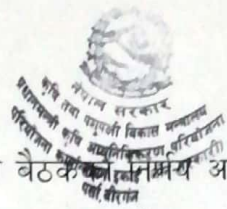 नेपाल सरकार
कृषि तथा पशुपन्छी विकास मन्त्रालय
प्रधानमन्त्री कृषि आधुनिकीकरण परियोजना
परियोजना कार्यान्वयन इकाई
पर्सा, वीरगंज
बैठकको निर्णय अ